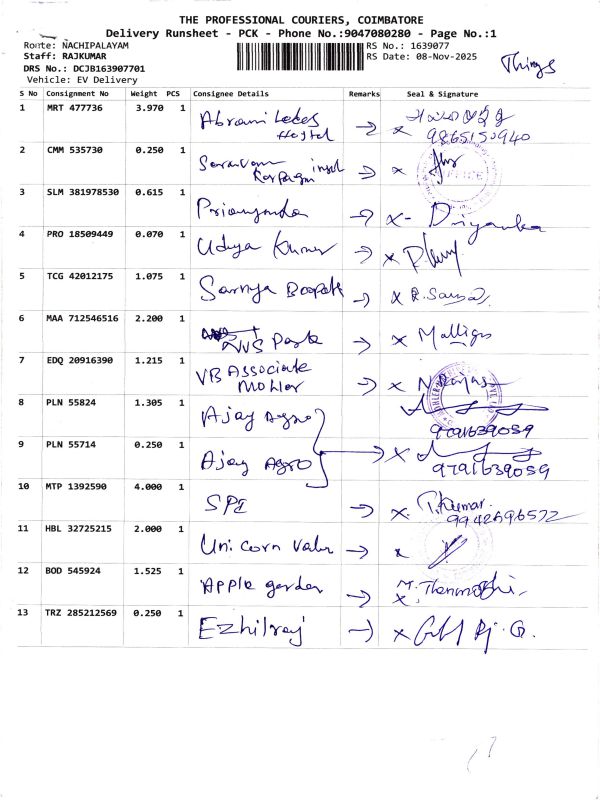 THE PROFESSIONAL COURIERS, COIMBATORE
Delivery Runsheet - PCK - Phone No.:9047080280 - Page No.:1
Route: NACHIPALAYAM RS No.: 1639077
Staff: RAJKUMAR RS Date: 08-Nov-2025
Things
DRS No.: DCJB163907701
Vehicle: EV Delivery
S No Consignment No Weight PCS Consignee Details Remarks Seal & Signature
1 MRT 477736 3.970 1 Abrami Ledes
Hostel x 9865150940
2 CMM 535730 0.250 1 x
3 SLM 381978530 0.615 1 x Priyanka
4 PRO 18509449 0.070 1 Udhya Kumar x
5 TCG 42012175 1.075 1 Sarnya Boopath x
6 MAA 712546516 2.200 1 x Malliga
7 EDQ 20916390 1.215 1 VB Associate
x
8 PLN 55824 1.305 1 Ajay Agro
9791639059
9 PLN 55714 0.250 1 Ajay AGRO x
9791639059
10 MTP 1392590 4.000 1 x T.Kumar.
9942696572
11 HBL 32725215 2.000 1 Uni corn Valu x
12 BOD 545924 1.525 1 APPle garden x
13 TRZ 285212569 0.250 1 Ezhilraj x